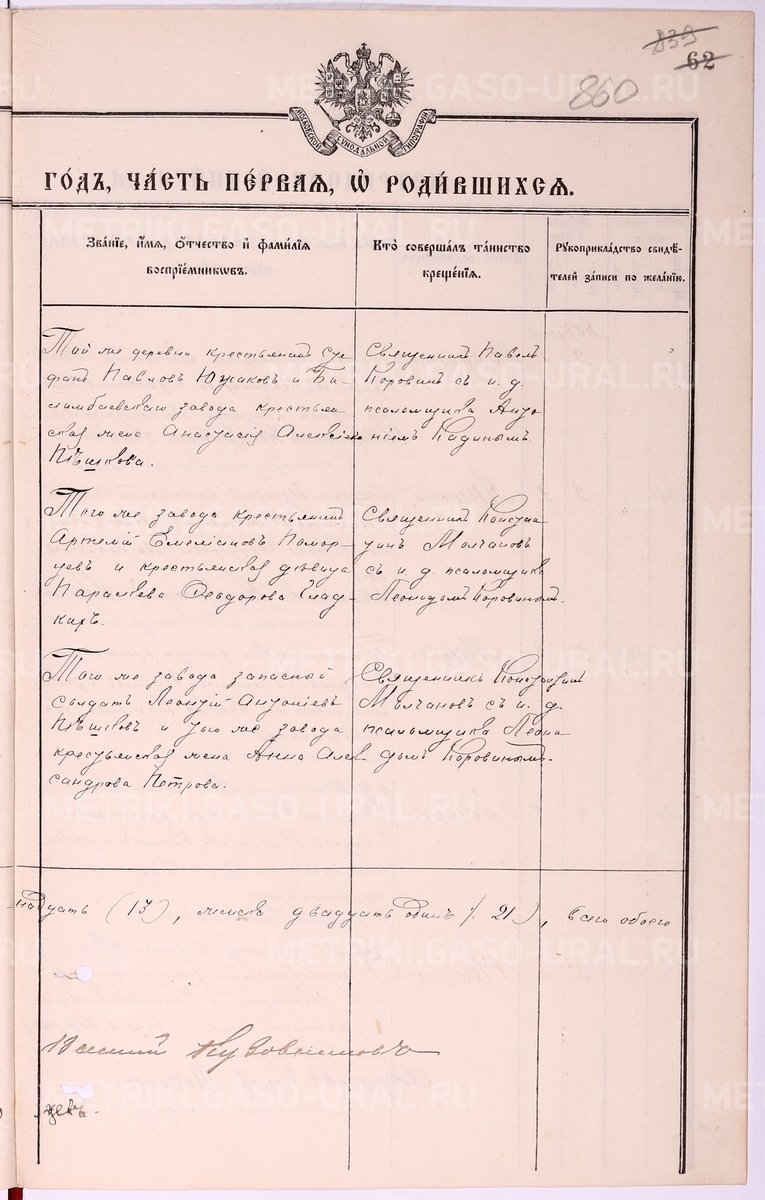 839
62
860
МОСКОВСКОЙ СѴНОДАЛЬНОЙ ТИПОГРАФІИ
ГО́ДЪ, ЧА́СТЬ ПЕ́РВАЯ, Ѽ РОДИ́ВШИХСЯ.
Зва́нїе, и҆́мя, ѻ҆́тчество и҆ фами́лїя
воспрїе́мникѡвъ.
Кто̀ соверша́лъ та́инство
креще́нїя.
Рꙋкоприкла́дство свидѣ́-
телей за́писи по жела́нїю.
Той же деревни крестьянинъ Сте
фанъ Павловъ Южаковъ и Би-
лимбаевскаго завода крестьян
ская жена Анастасія Алексіева
Пѣшкова.
Священникъ Павелъ
Коровинъ съ и. д.
псаломщика Анто
ніемъ Кадинымъ.
Того же завода крестьянинъ
Артемій Емеліановъ Помор-
цевъ и крестьянская дѣвица
Параскева Ѳеодорова Глад-
кихъ.
Священникъ Констан
тинъ Молчановъ
съ и. д. псаломщика
Леонидомъ Коровинымъ.
Того же завода запасный
солдатъ Леонтій Антоніевъ
Пѣшковъ и того же завода
крестьянская жена Анна Алек
сандрова Петрова.
Священникъ Константинъ
Молчановъ съ и. д.
псаломщика Леони
домъ Коровинымъ.
надцать (13), женска двадцать одинъ (21), всего обоего